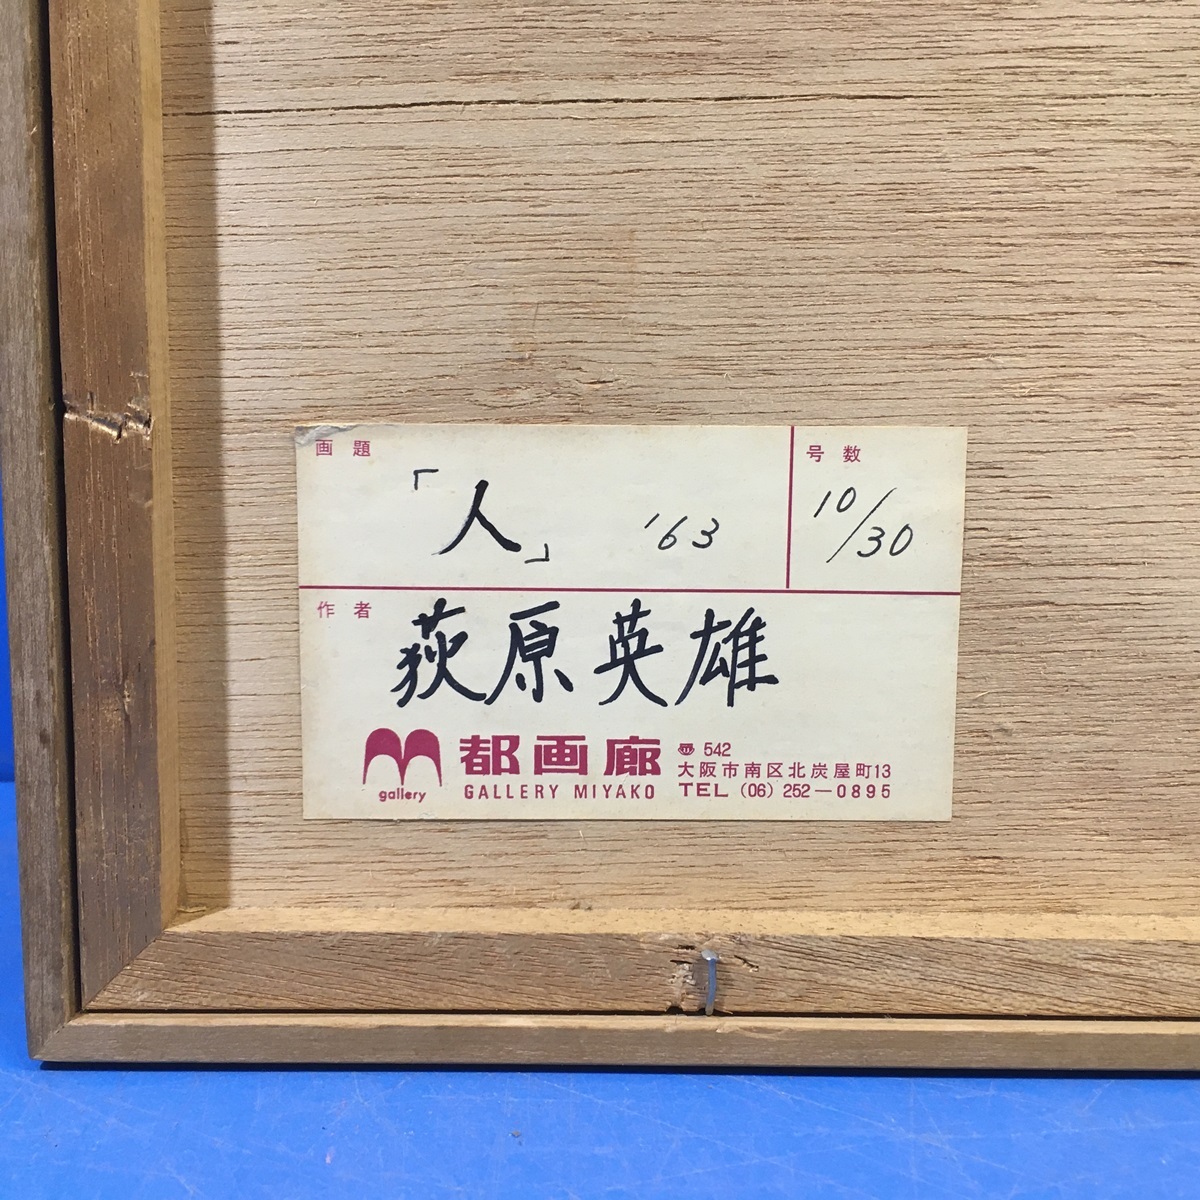 画題
「人」 '63
号数
10/30
作者
荻原英雄
gallery
都画廊
GALLERY MIYAKO
〠 542
大阪市南区北炭屋町13
TEL (06) 252-0895